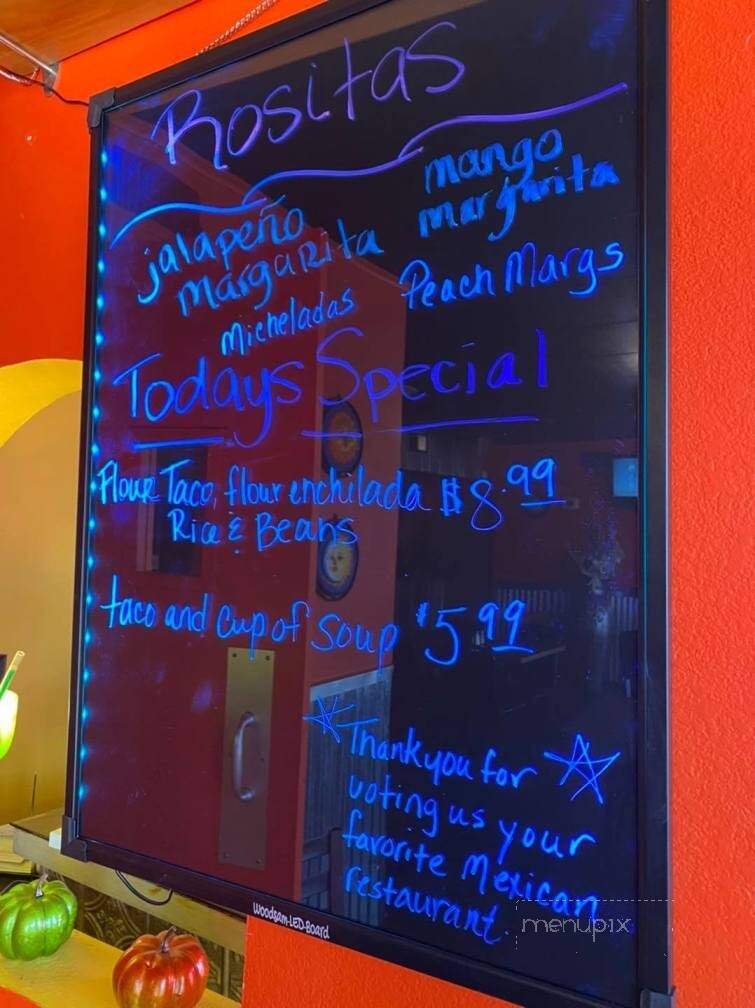 Rositas
jalapeño
margarita
mango
margarita
Micheladas
Peach Margs
Todays Special
Flour Taco, flour enchilada $8.99
Rice & Beans
taco and cup of soup $5.99
Thankyou for
voting us your
favorite Mexican
restaurant.
Woodsam-LED-Board
menupix